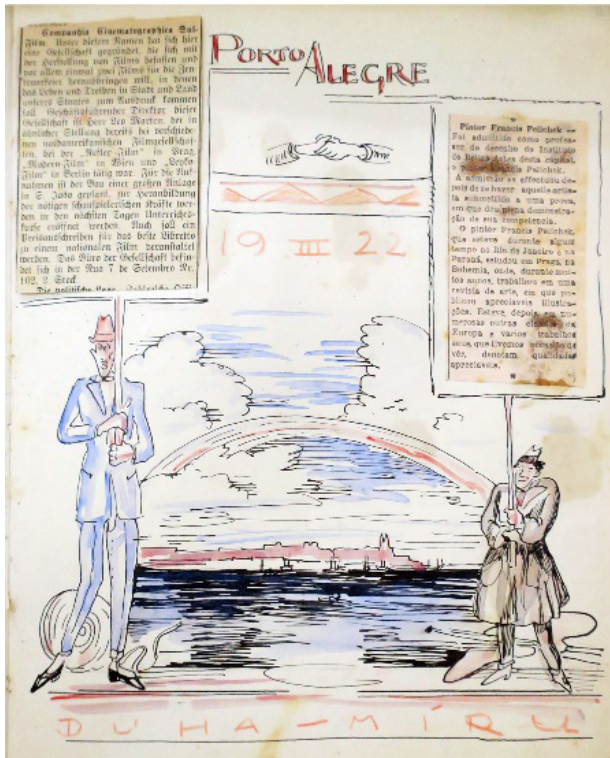 Companhia Cinematographica Sul-
Film. Unter diesem Namen hat sich hier
eine Gesellschaft gegründet, die sich mit
der Herstellung von Films befassen und
vor allem einmal zwei Films für die Zen-
tenarfeier herausbringen will, in denen
das Leben und Treiben in Stadt und Land
unseres Staates zum Ausdruck kommen
soll. Geschäftsführender Direktor dieser
Gesellschaft ist Herr Leo Marten, der in
ähnlicher Stellung bereits bei verschiede-
nen nordamerikanischen Filmgesellschaf-
ten, bei der in Prag,
"Modern-Film" in Wien und
Film" in Berlin tätig war. Für die Auf-
nahmen ist der Bau einer großen Anlage
in S. João geplant. Zur Heranbildung
der nötigen schauspielerischen Kräfte wer-
den in den nächsten Tagen Unterrichts-
kurse eröffnet werden. Auch soll ein
Preisausschreiben für das beste Libretto
zu einem nationalen Film veranstaltet
werden. Das Büro der Gesellschaft befin-
det sich in der Rua 7 de Setembro Nr.
102, 2. Stock
Die politische Lage.
PORTO ALEGRE
19 III 22
Pintor Francis Pelichek —
Foi admittido como profes-
sor de desenho do Instituto
de Bellas Artes desta capital,
o pintor Francis Pelichek.
A admissão se effectuou de-
pois de se haver aquelle artis-
ta submettido a uma prova,
em que deu plena demonstra-
ção de sua competencia.
O pintor Francis Pelichek,
que esteve durante algum
tempo no Rio de Janeiro e no
Paraná, estudou em Praga, na
Bohemia, onde, durante mui-
tos annos, trabalhou em uma
revista de arte, em que pu-
blicou apreciaveis illustra-
ções. Esteve, depois, em nu-
merosas outras cidades da
Europa e varios trabalhos
seus, que tivemos occasião de
vêr, denotam qualidades
apreciaveis.
DUHA–MÍRU